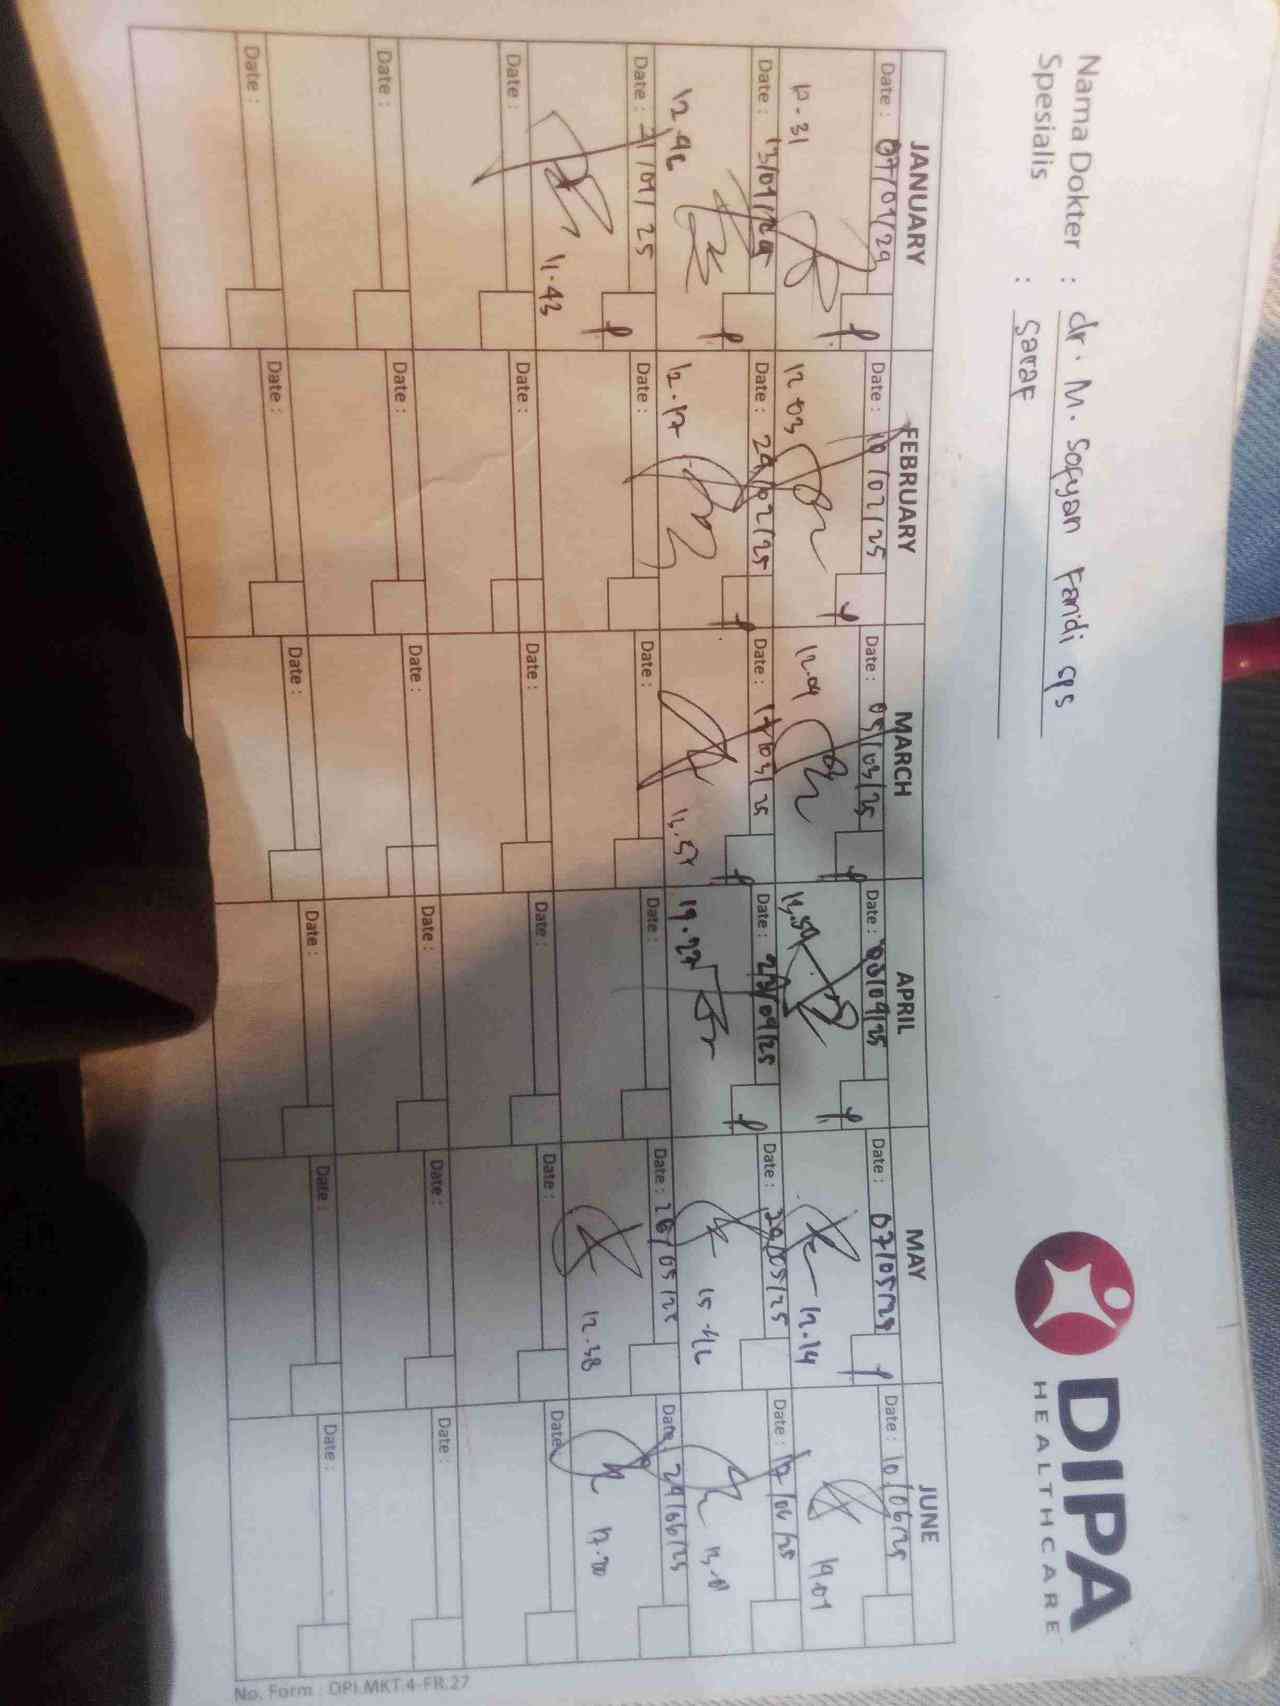 DIPA
HEALTHCARE
Nama Dokter : dr. M. Sofyan Fandi sps
Spesialis : Saraf
JANUARY FEBRUARY MARCH APRIL MAY JUNE
Date : 07/01/29 Date : 10/02/25 Date : 05/03/25 Date : 08/04/25 Date : 07/05/25 Date : 10/06/25
12.03 12.09 12.14 19.01
Date : 13/01/29 Date : 24/02/25 Date : 17/03/25 Date : Date : 20/05/25 Date : 17/06/25
12.46 12.17 19.27 15.46
Date : 21/01/25 Date : Date : Date : Date : 26/05/25 Date : 24/06/25
11.43 12.38
Date : Date : Date : Date : Date : Date
Date : Date : Date : Date : Date : Date :
Date : Date : Date : Date : Date : Date :
No. Form : OPI.MKT.4-FR.27